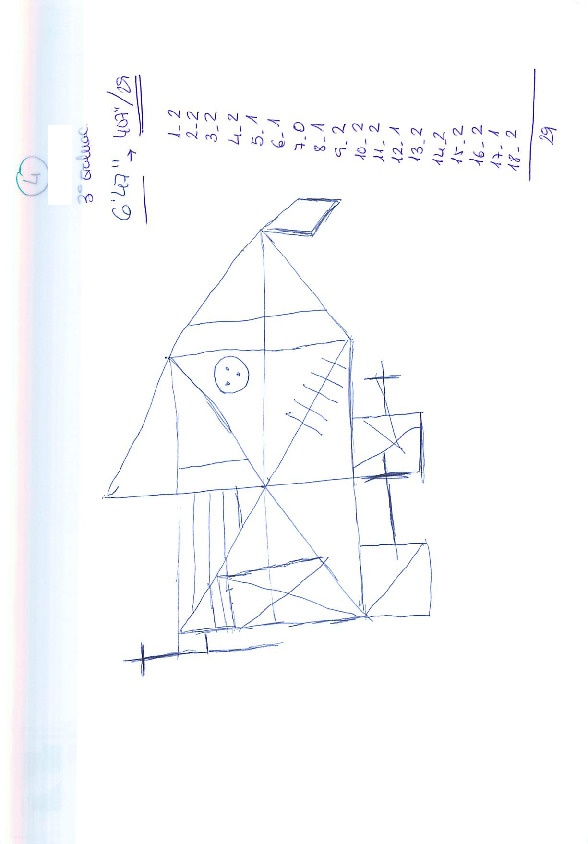 4
3ª
6'47" → 407"/29
1-2
2-2
3-2
4-2
5-1
6-1
7-0
8-1
9-2
10-2
11-2
12-1
13-2
14-2
15-2
16-2
17-1
18-2
29